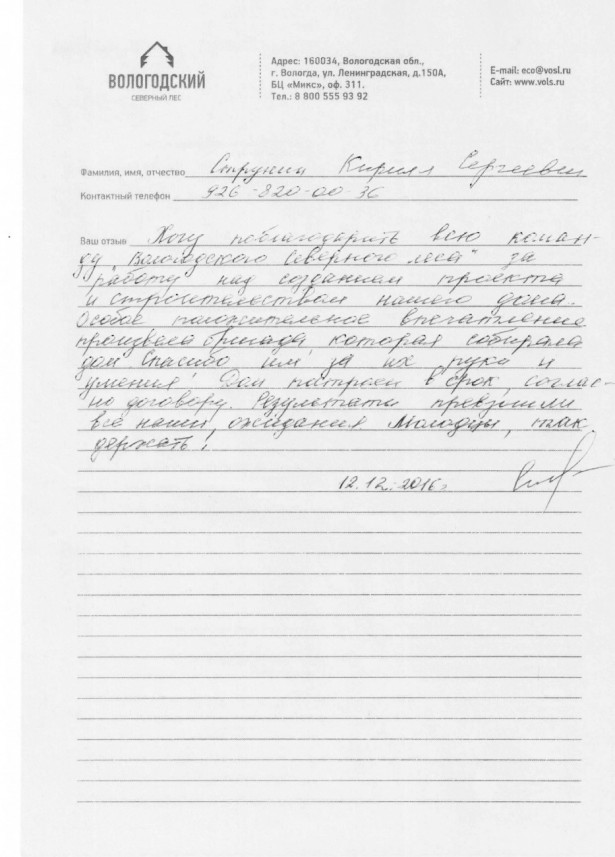 ВОЛОГОДСКИЙ
СЕВЕРНЫЙ ЛЕС
Адрес: 160034, Вологодская обл.,
г. Вологда, ул. Ленинградская, д.150А,
БЦ «Микс», оф. 311.
Тел.: 8 800 555 93 92
E-mail: eco@vosl.ru
Сайт: www.vols.ru
Фамилия, имя, отчество Кирилл Сергеевич
Контактный телефон 926-820-00-36
Ваш отзыв Хочу поблагодарить всю коман-
ду „Вологодского Северного леса" за
работу над созданием проекта
и строительством нашего дома.
Особое положительное впечатление
произвела бригада которая собирала
дом. Спасибо им за их руки и
умения! Дом построен в срок, соглас-
но договору. Результаты превзошли
все наши ожидания. Молодцы, так
держать!
12.12.2016г.